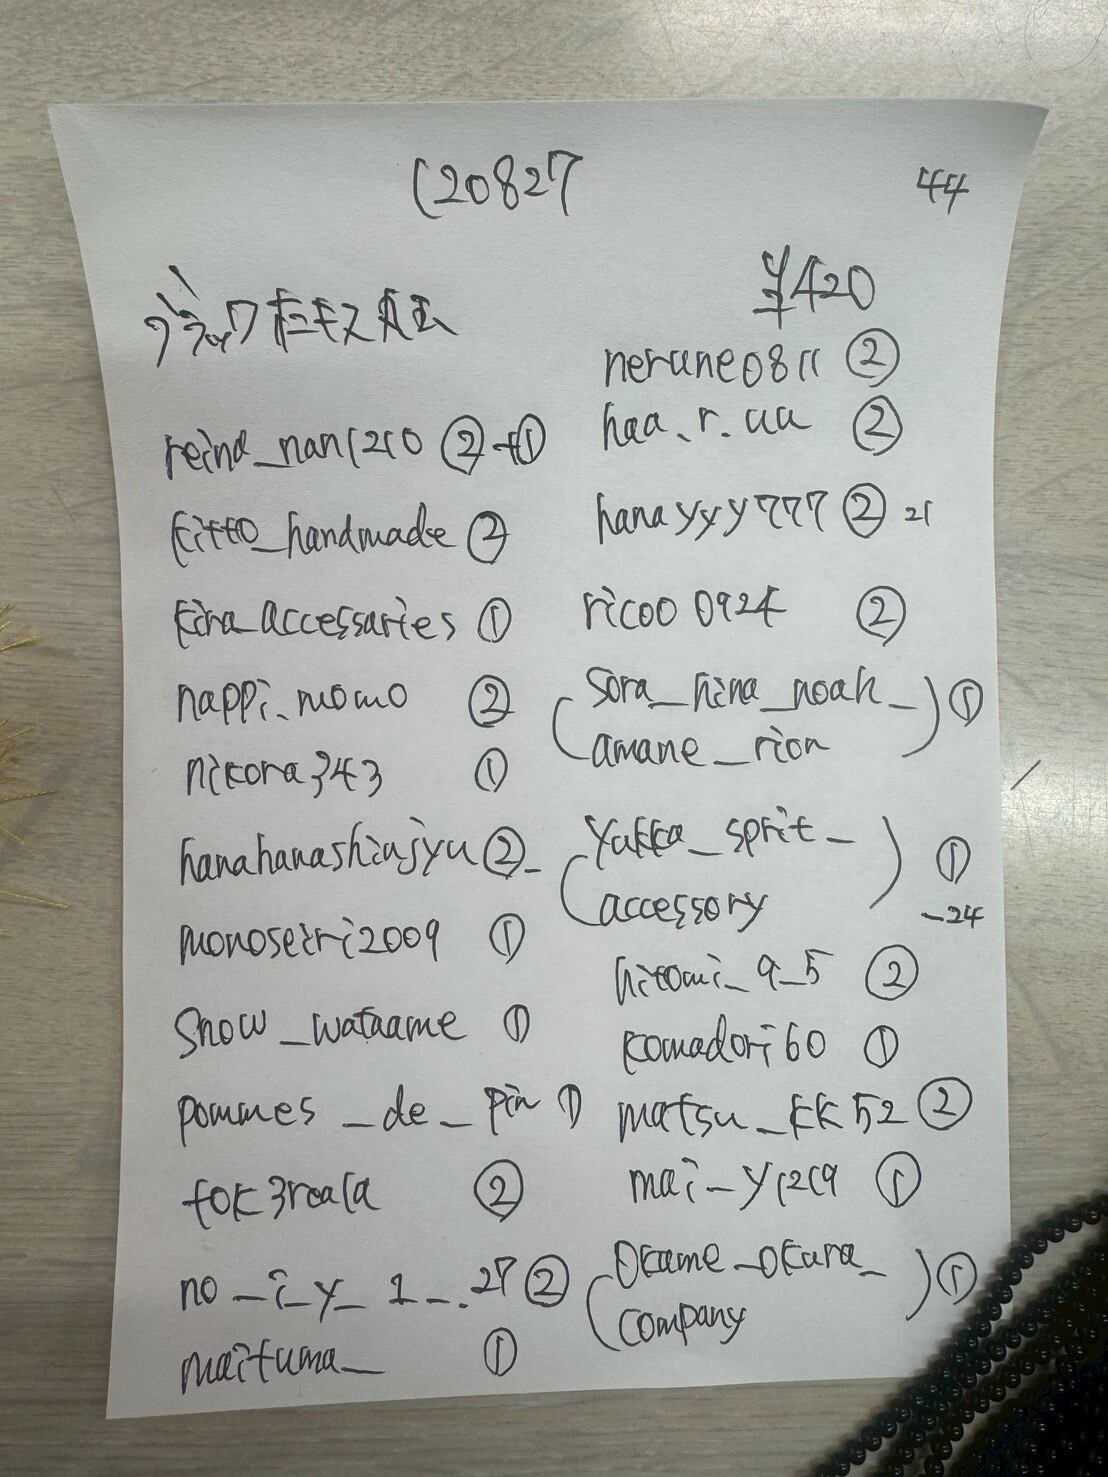 120827
44
¥420
reina_nan1210 ② +①
kitto_handmade ②
kira_accessaries ①
nappi_momo ②
nikora343 ①
hanahanashinjyu ② -
monoseiri2009 ①
snow_wataame ①
pommes_de_pin ①
fok3roala ②
no_i_y_1_.27 ②
maituma_ ①
nerune0811 ②
haa.r.uu ②
hanayyy777 ② 21
ricoo0924 ②
(sora_hina_noah_
amane_rion) ①
(yukka_sprit_
accessory) ①
-24
hitomi_9_5 ②
komadori60 ①
matsu_kk52 ②
mai_y1219 ①
(okame_okura_
company) ①